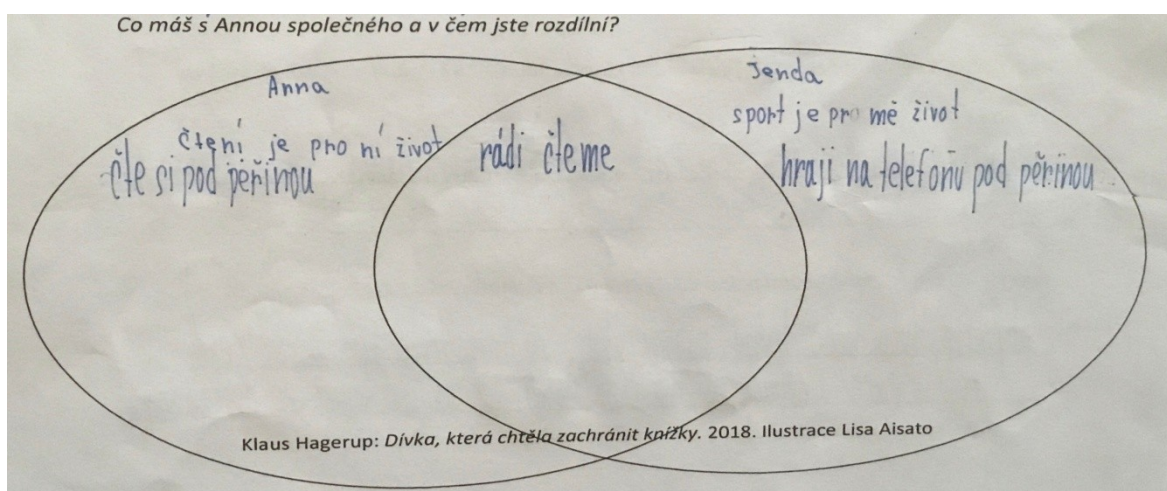 Co máš s Annou společného a v čem jste rozdílní?
Anna
čtení je pro ní život
čte si pod peřinou
rádi čteme
Jenda
sport je pro mě život
hraji na telefonu pod peřinou
Klaus Hagerup: Dívka, která chtěla zachránit knížky. 2018. Ilustrace Lisa Aisato